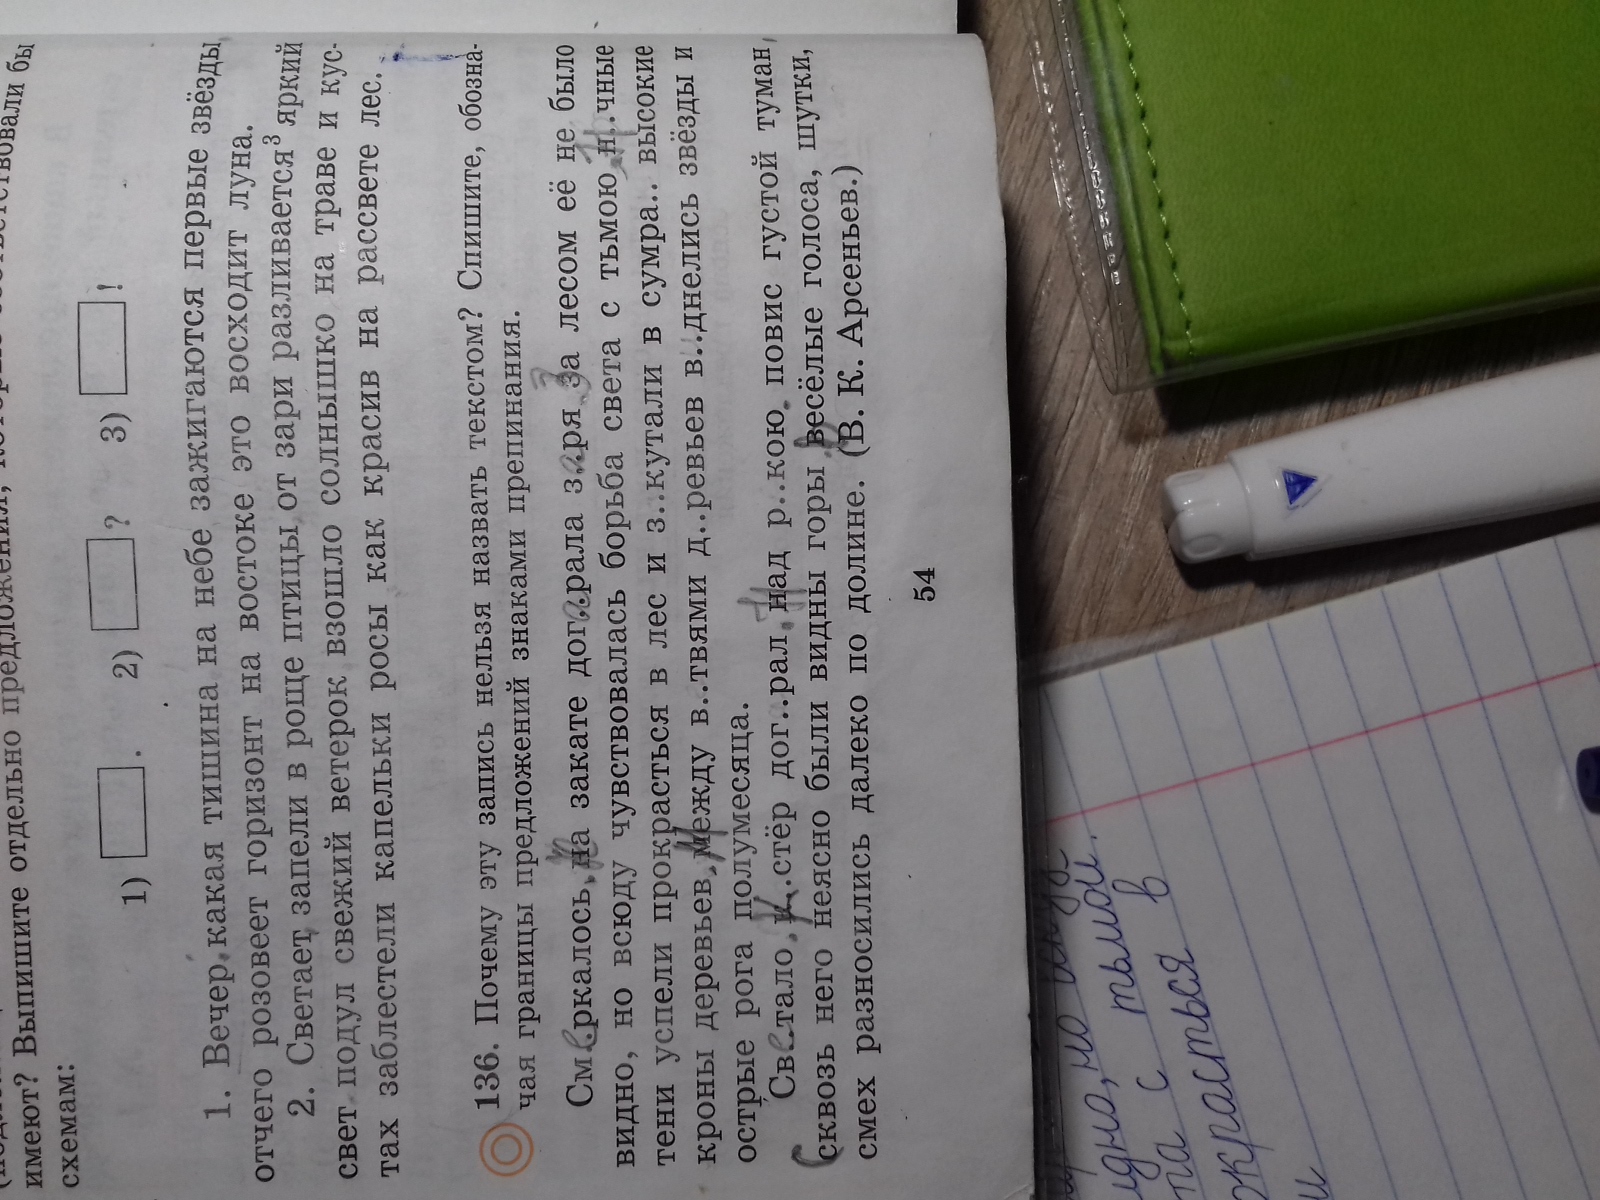 имеют? Выпишите отдельно предложения,
схемам:
1) . 2) ? 3) !
1. Вечер какая тишина на небе зажигаются первые звёзды
отчего розовеет горизонт на востоке это восходит луна.
2. Светает запели в роще птицы от зари разливается³ яркий
свет подул свежий ветерок взошло солнышко на траве и кус-
тах заблестели капельки росы как красив на рассвете лес.
136. Почему эту запись нельзя назвать текстом? Спишите, обозна-
чая границы предложений знаками препинания.
См..ркалось на закате дог..рала з..ря за лесом её не было
видно, но всюду чувствовалась борьба света с тьмою н..чные
тени успели прокрасться в лес и з..кутали в сумра.. высокие
кроны деревьев между в..твями д..ревьев в..днелись звёзды и
острые рога полумесяца.
Св..тало к..стёр дог..рал над р..кою повис густой туман
сквозь него неясно были видны горы весёлые голоса, шутки,
смех разносились далеко по долине. (В. К. Арсеньев.)
54
идно, но
тьмой.
та с
красться в